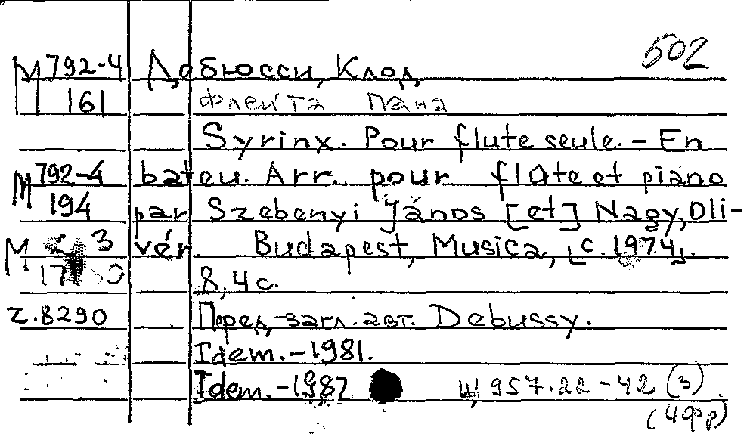 502
М 792-4 Дебюсси, Клод
161 Флейта Пана
Syrinx. Pour flute seule. – En
М 792-4 bateu. Arr. pour flûte et piano
194 par Szebenyi János [et] Nagy, Oli-
М 3 vér. Budapest, Musica, [c. 1974].
8, 4 с.
Z.8290 Перед загл. авт. Debussy.
Idem. – 1981.
Idem. – 1987 Ц 957.22-42 (3)
(49р)